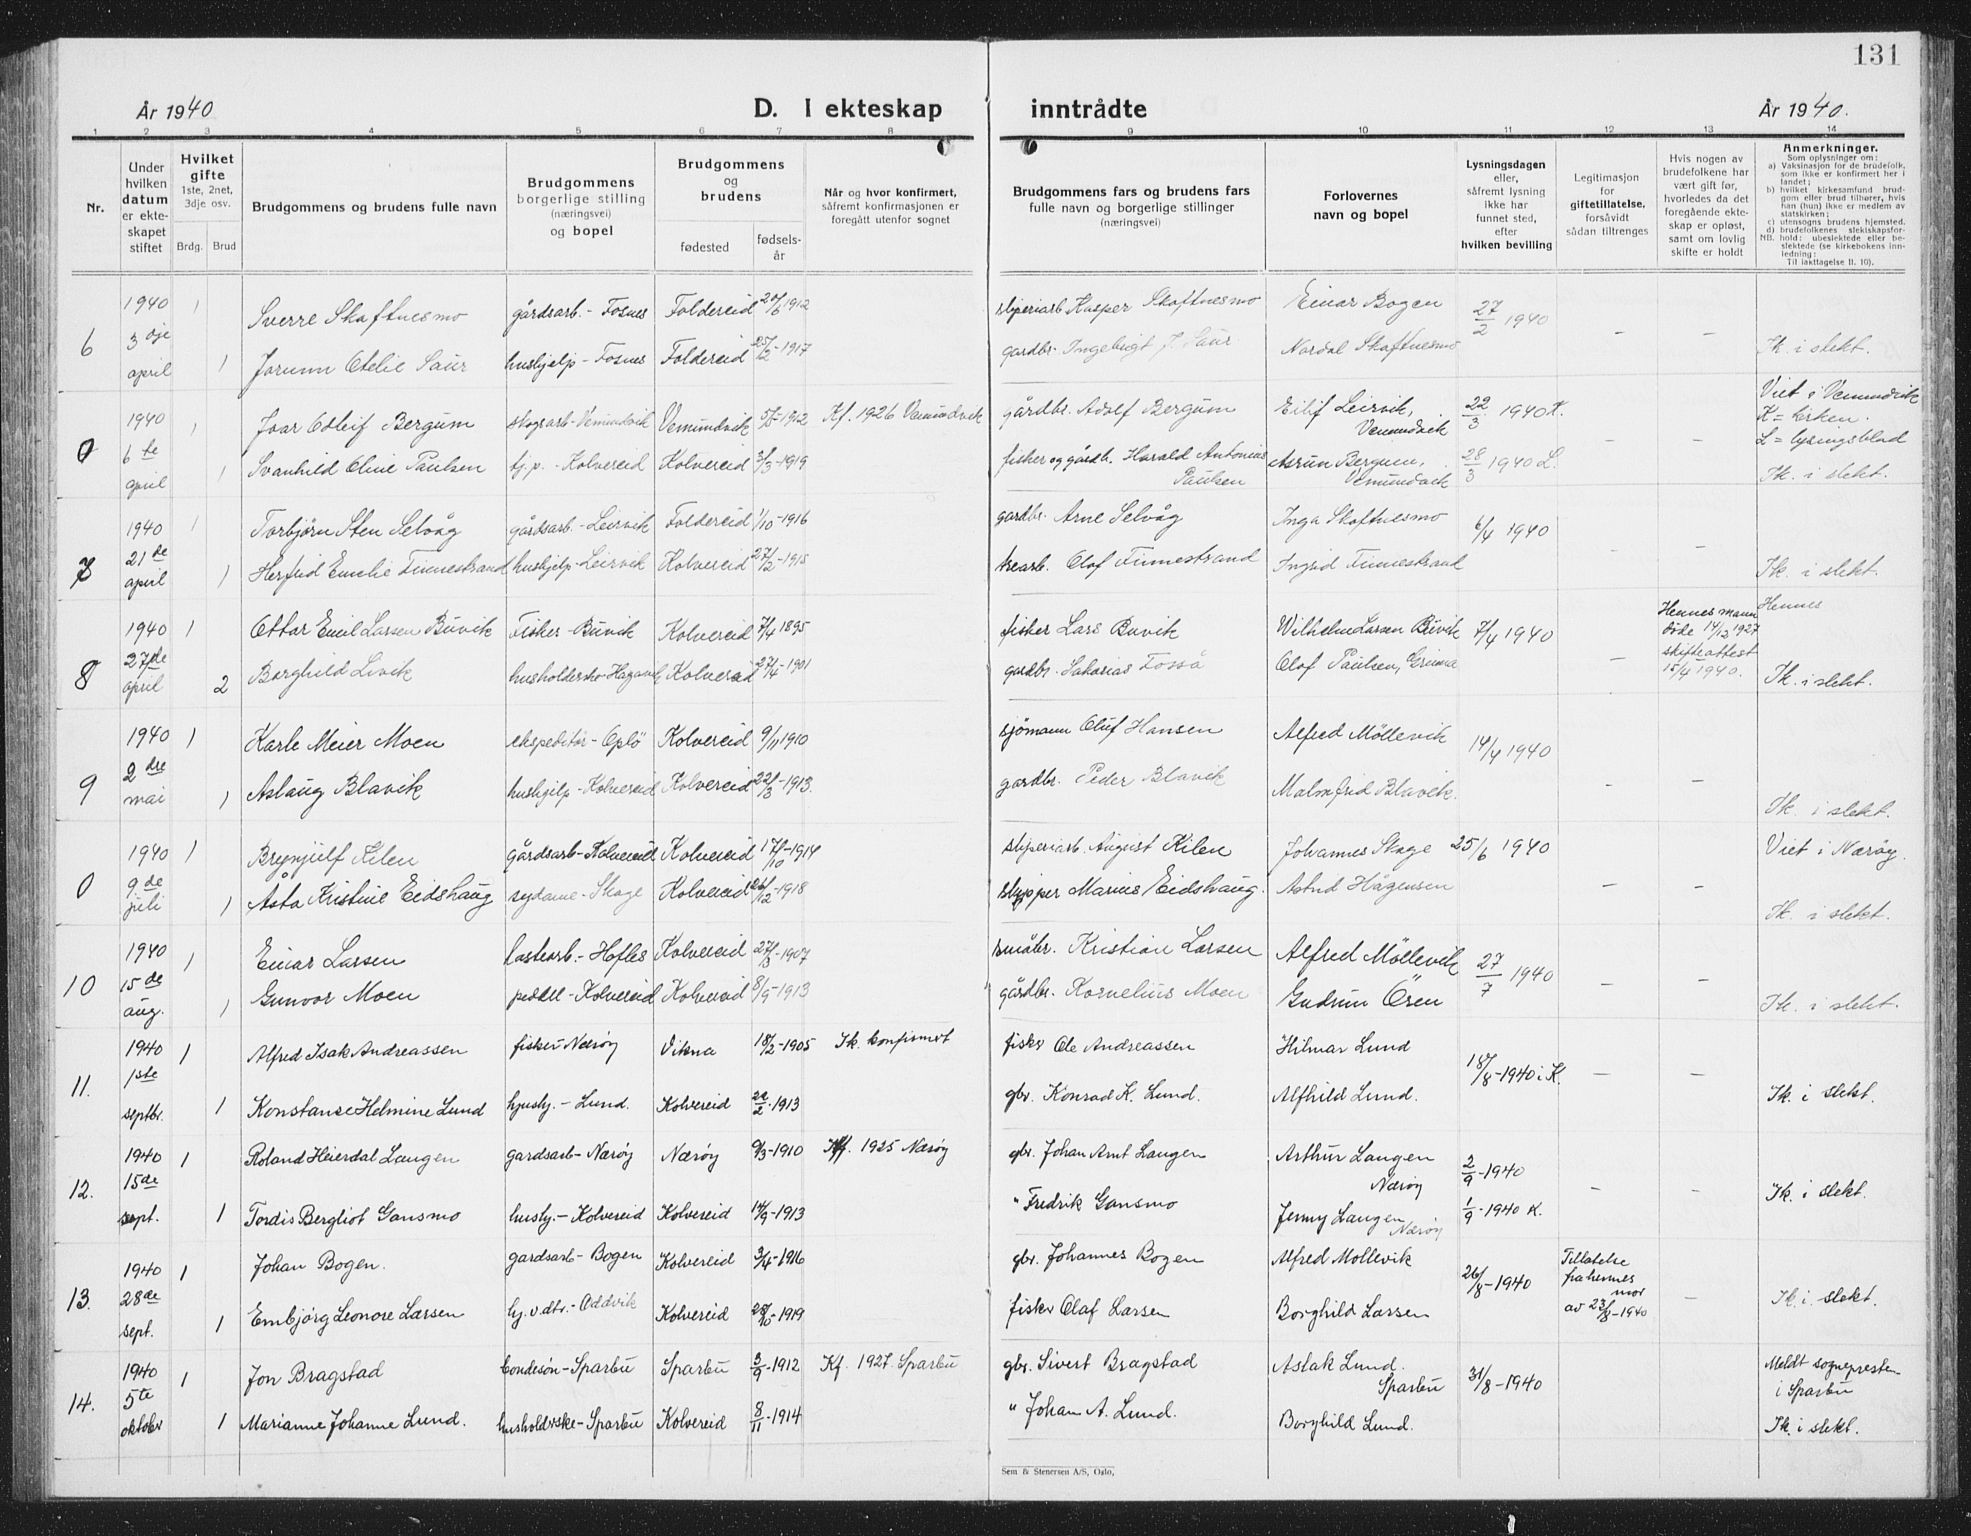 131
År 1940
D. I ekteskap inntrådte
År 1940.
1 2 3 4 5 6 7 8 9 10 11 12 13 14
Nr.
Under
hvilken
datum
er ekte-
skapet
stiftet
Hvilket
gifte
1ste, 2net,
3dje osv.
Brdg. Brud
Brudgommens og brudens fulle navn
Brudgommens
borgerlige stilling
(næringsvei)
og bopel
Brudgommens
og
brudens
fødested
fødsels-
år
Når og hvor konfirmert,
såfremt konfirmasjonen er
foregått utenfor sognet
Brudgommens fars og brudens fars
fulle navn og borgerlige stillinger
(næringsvei)
Forlovernes
navn og bopel
Lysningsdagen
eller,
såfremt lysning
ikke har
funnet sted,
efter
hvilken bevilling
Legitimasjon
for
giftetillatelse,
forsåvidt
sådan tiltrenges
Hvis nogen av
brudefolkene har
vært gift før,
hvorledes da det
foregående ekte-
skap er opløst,
samt om lovlig
skifte er holdt
Anmerkninger.
Som oplysninger om:
a) Vaksinasjon for de brudefolk,
som ikke er konfirmert her i
landet;
b) hvilket kirkesamfund brud-
gom eller brud tilhører, hvis
han (hun) ikke er medlem av
statskirken;
c) utensogns brudens hjemsted.
d) brudefolkenes slektskapsfor-
NB. hold: ubeslektede eller be-
slektede (se kirkebokens inn-
ledning:
Til iakttagelse II. 10).
1940 1 Sverre Skaftnesmo gårdsarb. - Fosnes Foldereid 20/6 1912 Kasper Skaftnesmo Einar Bogen 27/2 1940
6 3dje april 1 Jorunn Otelie Saur hushjelp - Fosnes Foldereid 1917 gardbr. Ingebrigt J. Saur Nordal Skaftnesmo - - Ik. i slekt.
1940 1 Ivar Odleif Bergum skogsarb - Vemundvik Vemundvik 5/5-1912 Kf. 1926 Vemundvik gårdbr. Adolf Bergum Eilif Leirvik, Vemundvik 22/3 1940 K. Viet i Vemundvik
K = kirken.
L = lysingsblad
0 6te april 1 Svanhild Oline Paulsen tj.p. - Kolvereid Kolvereid 3/3-1919 fisker og gårdb. Harald Antonius Paulsen Asrun Bergum, Vemundvik 28/3 1940 L. - - Ik. i slekt.
1940 1 Torbjørn Sten Selvåg gårdsarb - Leirvik Foldereid 1/10-1916 gardbr. Arne Selvåg Inga Skaftnesmo 6/4 1940
7 21de april 1 Herfrid Emelie Finnestrand hushjelp - Leirvik Kolvereid 1915 trearb. Olof Finnestrand Ingrid Finnestrand - - Ik. i slekt.
1940 1 Ottar Emil Larsen Buvik Fisker - Buvik Kolvereid 7/4 1895 fisker Lars Buvik Wilhelm Larsen Buvik 7/4 1940 Hennes mann
døde 14/12 1927
skifteattest
15/4 1940. Hennes
8 27de april 2 Borghild Livik Kolvereid 27/4-1901 gardbr. Sakarias Fosså Olof Paulsen, - Ik. i slekt.
1940 1 Karle Meier Moen ekspeditør - Oplø Kolvereid 9/11 1910 sjømann Oluf Hansen Alfred Möllevik 14/4 1940
9 2dre mai 1 Aslaug Blavik hushjelp - Kolvereid Kolvereid 22/3-1913. gardbr. Peder Blavik Malmfrid Blavik. - - Ik. i slekt.
1940 1 Brynjulf Kilen gårdsarb - Kolvereid Kolvereid 17/10-1914 August Kilen Johannes Skage 25/6 1940 Viet i Nærøy.
0 9de juli 1 Åsta Kristine Eidshaug sydame - Skage Kolvereid 26/12-1918 skipper Marius Eidshaug. Astrid Hågensen - - Ik. i slekt.
1940 1 Einar Larsen lastearb. - Hofles Kolvereid 27/8-1907 småbr. Kristian Larsen Alfred Möllevik 27/7 1940
10 15de aug. 1 Gunvor Moen Kolvereid Kolvereid 8/9-1913 gårdbr. Kornelius Moen Gudrun Ören - - Ik. i slekt.
1940 1 Alfred Isak Andreassen fisker - Nærøy Vikna 18/2-1905 Ik. konfirmert fisker Ole Andreassen Hilmar Lund 18/8-1940 i K. - -
11. 1ste septbr. 1 Konstanse Helmine Lund hjushj. - Lund. Kolvereid 22/2-1913 gbr. Konrad K. Lund. Alfhild Lund. Ik. i slekt.
1940 1 Roland Heierdal Langen gardsarb - Nærøy Nærøy 9/3-1910 Kf. 1925 Nærøy gbr. Johan Arnt Langen Arthur Langen Nærøy 2/9-1940
12. 15de sept. 1 Tordis Bergliot Gansmo hushj. - Kolvereid Kolvereid 14/9-1913 " Fredrik Gansmo Jenny Langen Nærøy 1/9-1940 K. - - Ik. i slekt.
1940 1 Johan Bogen. gardsarb - Bogen Kolvereid 3/4-1916 gbr. Johannes Bogen Alfred Mollevik 26/8-1940 Tillatelse
fra hennes
mor
av 23/8-1940
13. 28de sept. 1 Embjørg Leonore Larsen hj.v.dtr. - Oddvik Kolvereid 28/10-1919 fisker Olaf Larsen Borghild Larsen - Ik. i slekt.
1940 1 Jon Bragstad bondesøn - Sparbu Sparbu 3/9-1912 Kf. 1927. Sparbu gbr. Sivert Bragstad Aslak Lund. Sparbu 31/8-1940 Meldt sognepresten
i Sparbu
14. 5te oktober 1 Marianne Johanne Lund. husholderske - Sparbu Kolvereid 8/11-1914 " Johan A. Lund. Borghild Lund. Ik. i slekt.
Sem & Stenersen A/S, Oslo,